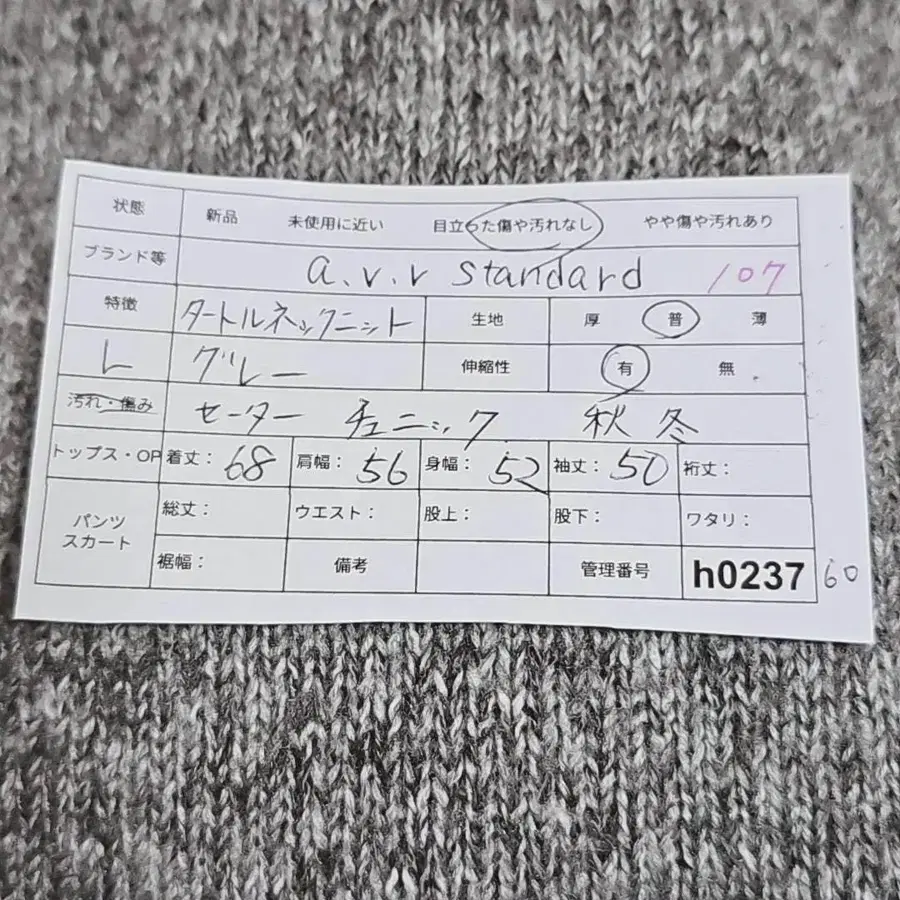 状態 新品 未使用に近い 目立った傷や汚れなし やや傷や汚れあり
ブランド等 a.v.v standard 107
特徴 タートルネックニット 生地 厚 普 薄
L グレー 伸縮性 有 無
汚れ・傷み セーター チュニック 秋冬
トップス・OP 着丈： 68 肩幅： 56 身幅： 52 袖丈： 50 裄丈：
パンツ スカート 総丈： ウエスト： 股上： 股下： ワタリ：
裾幅： 備考 管理番号 h0237 60